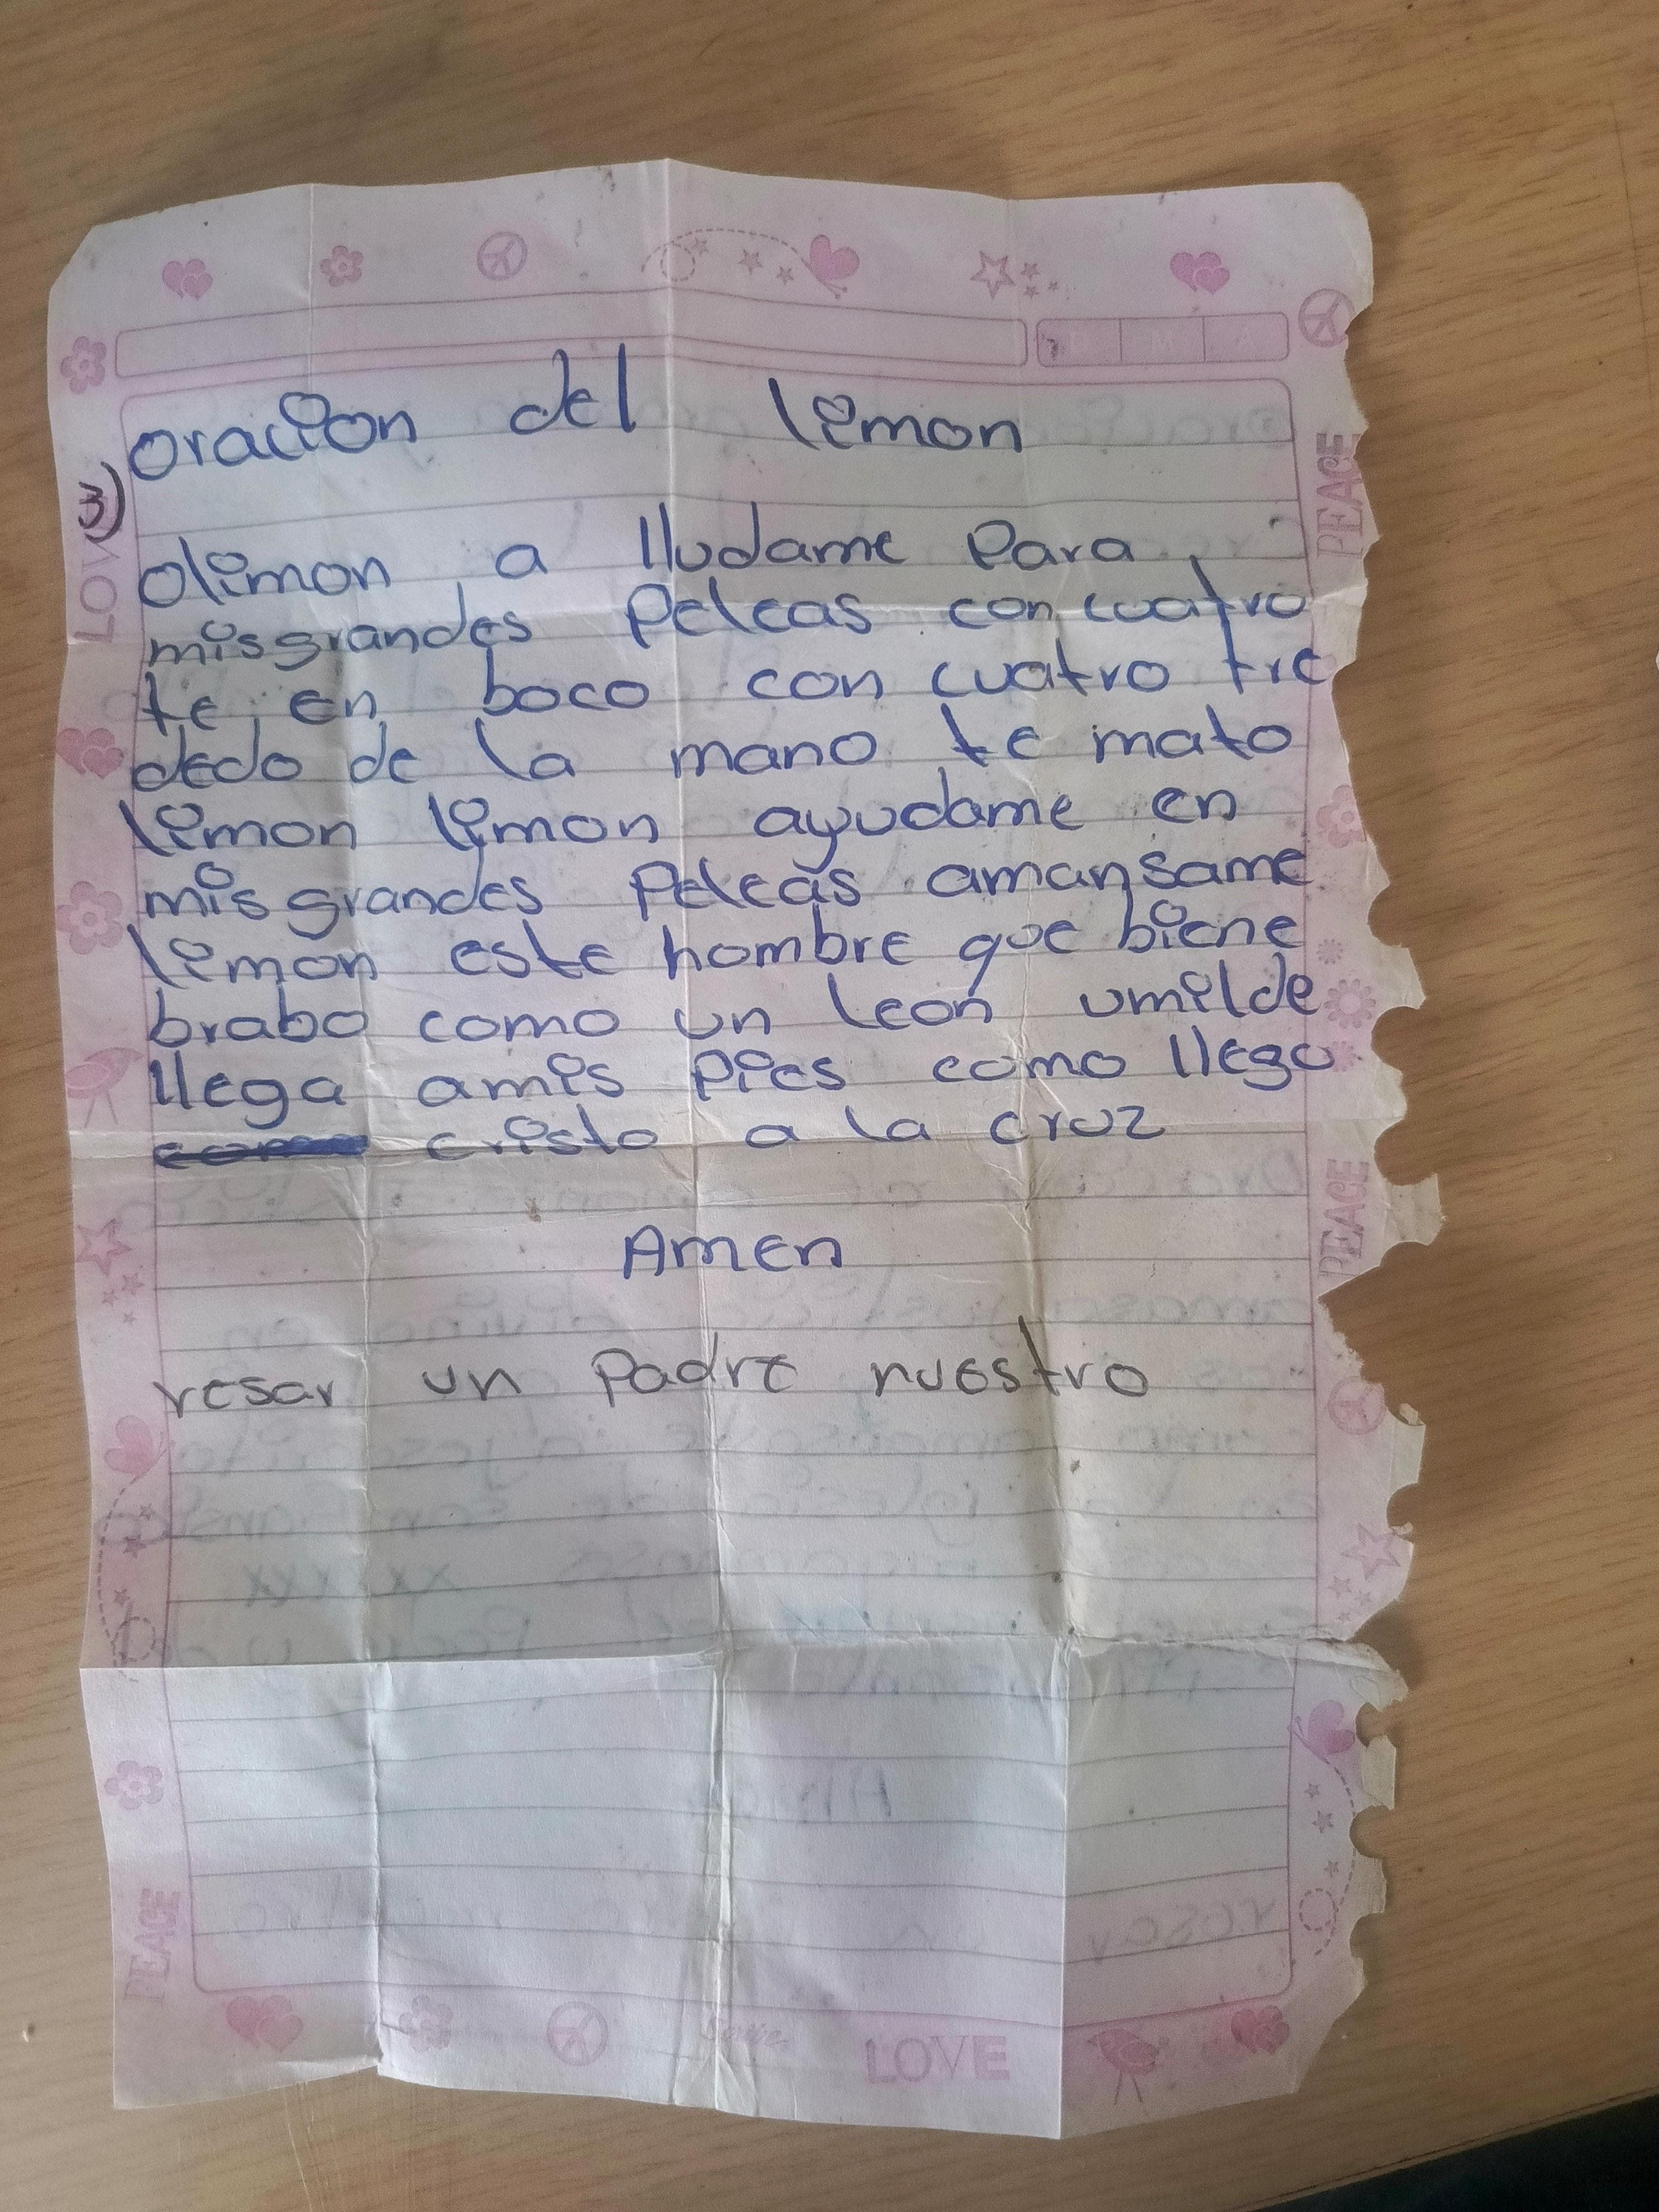 oracion del limon
3)
olimon a lludame para
misgrandes peleas con cuatro
te en boco con cuatro tre
dedo de la mano te mato
limon limon ayudame en
mis grandes peleas amansame
limon este hombre que biene
brabo como un leon umilde
llega amis pies como llego
cristo a la cruz
Amen
resar un padre nuestro
LOVE
PEACE
PEACE
PEACE
LOVE